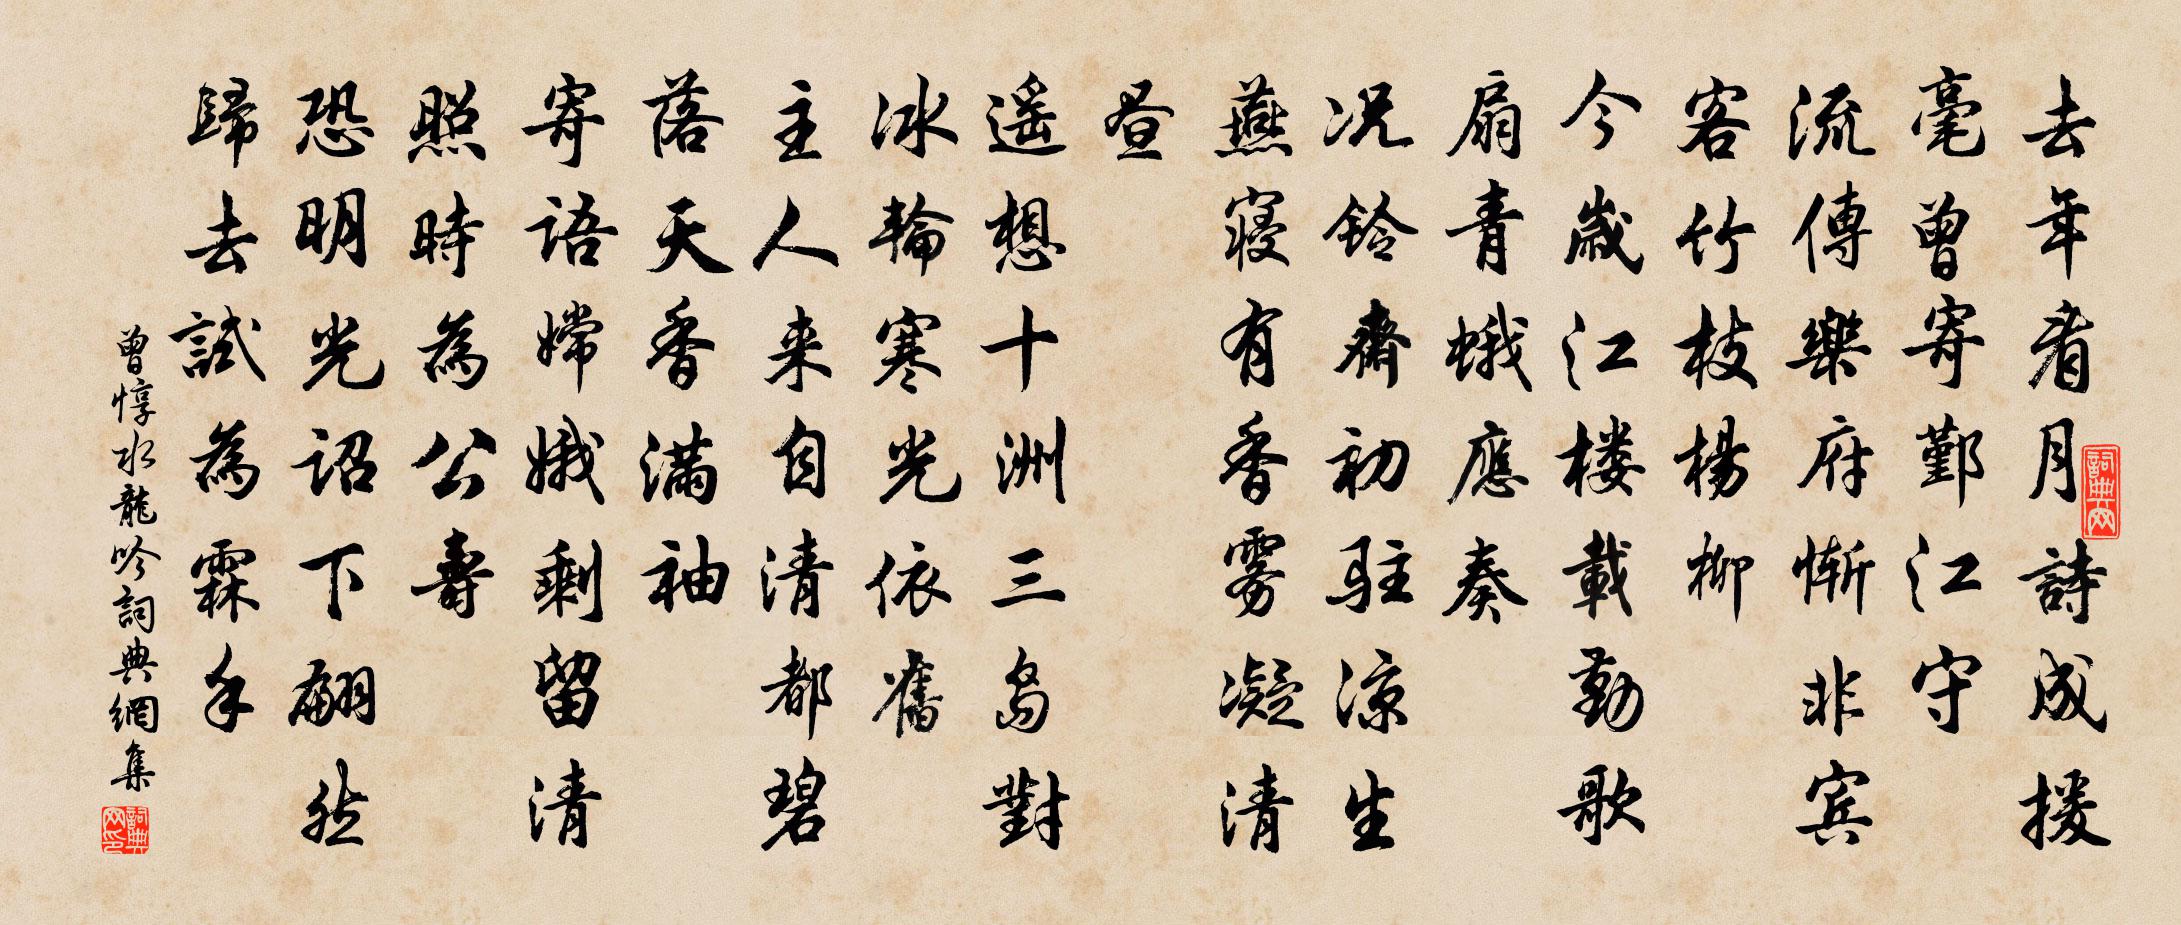 去年看月詩成援
毫曾寄鄞江守
流傳樂府慚非宾
客竹枝楊柳
今歲江楼載勤歌
扇青蛾應奏
况鈴齋初駐涼生
燕寢有香雾凝清
昼
遥想十洲三岛對
冰輪寒光依舊
主人来自清都碧
落天香滿袖
寄語嫦娥剩留清
照時為公壽
恐明光詔下翩然
歸去試為霖手
曾惇水龍吟詞典網集
詞典网
詞典网印